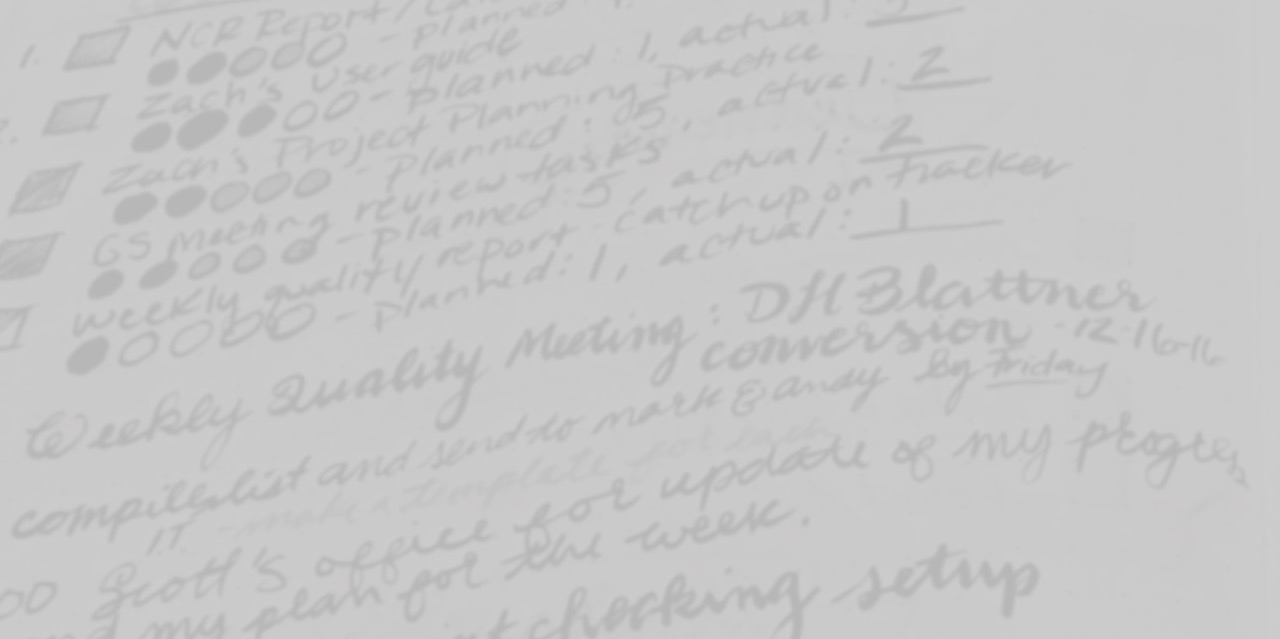 1. NCR Report/
- Planned
Zach's user guide
- Planned: 1, actual:
Zach's Project Planning Practice
- Planned: 5, actual: 2
GS Meeting review tasks
- Planned: 5, actual: 2
Weekly quality report - catch up on Tracker
- Planned: 1, actual: 1
Weekly Quality Meeting: DH Blattner
conversion - 12-16-16
compile list and send to mark & andy by Friday
I.T. - make a template for
Scott's office for update of my
my plan for the week.
checking setup